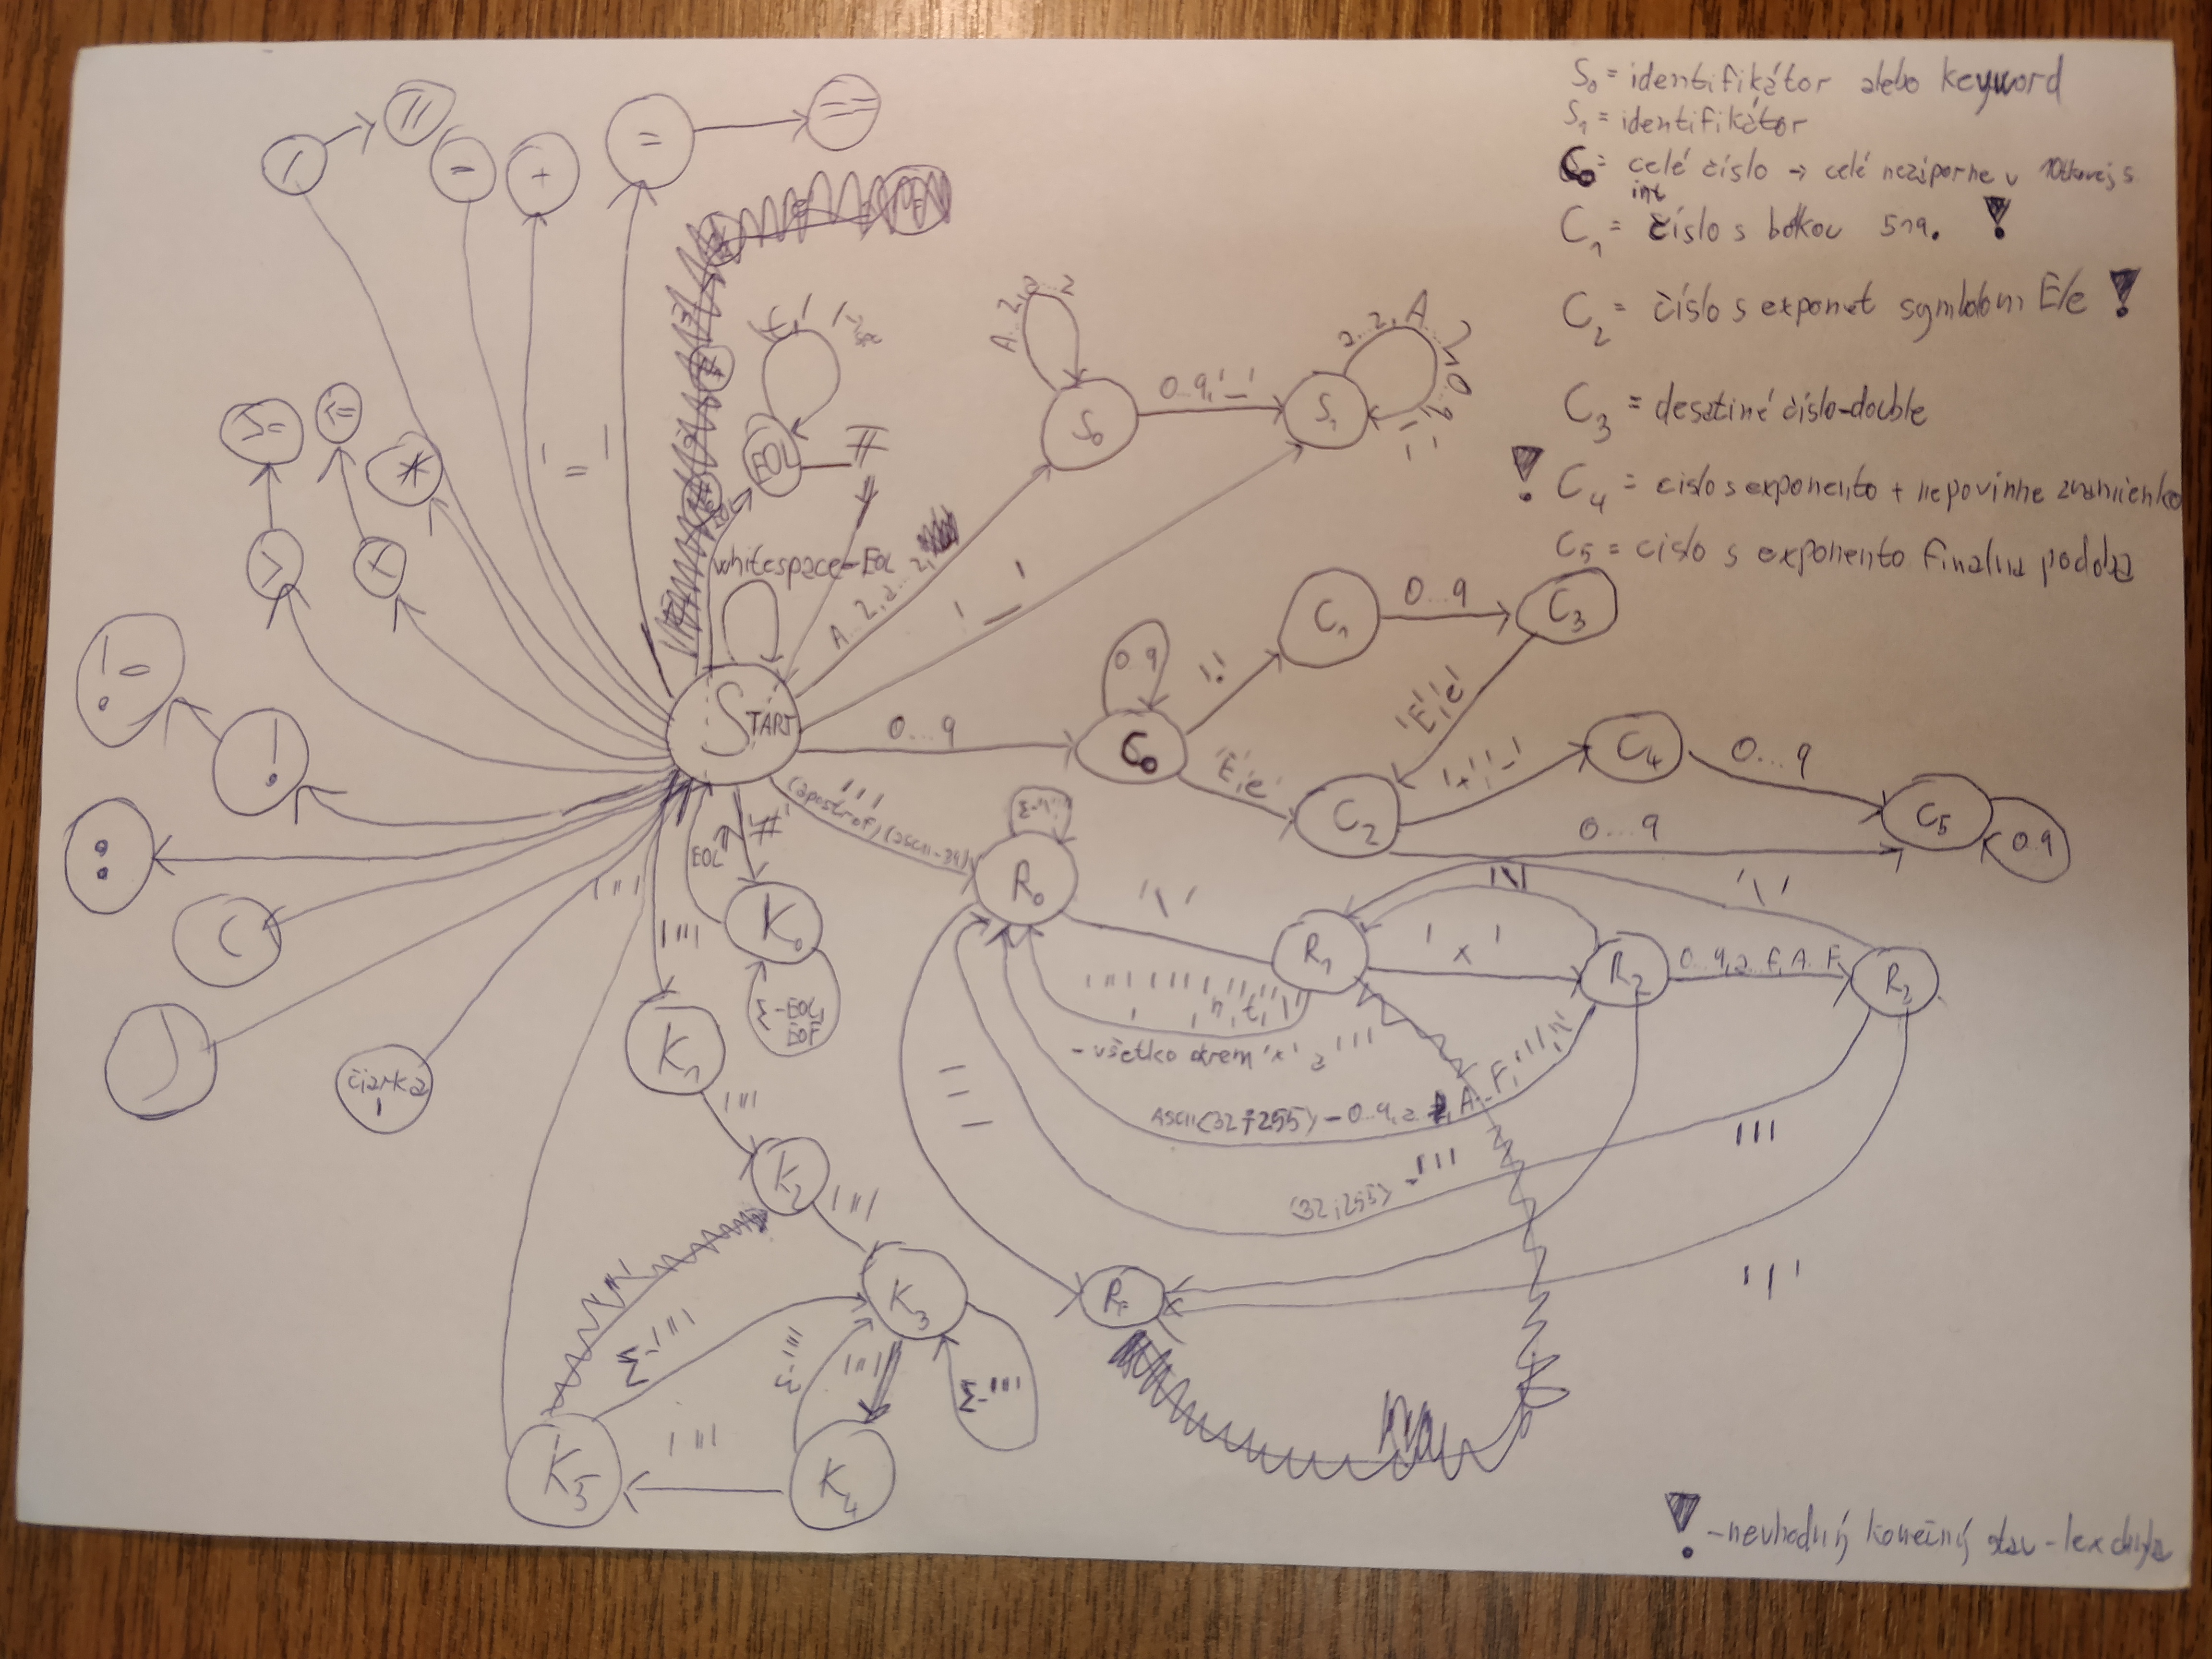 S₀ = identifikátor alebo keyword
S₁ = identifikátor
C₀ = celé číslo → celé nezáporne v
int
C₁ = číslo s bdkou !
C₂ = číslo s exponet symbolom E/e !
C₃ = desatiné číslo-double
! C₄ = cislo s exponento + nepovinne znamienko
C₅ = cislo s exponento finalna podoba
/
//
-
+
=
==
'='
>=
<=
*
>
<
!=
!
:
(
)
čiarka
,
EOL
#
EOL
whitespace-EOL
START
A..Z,a..z
S₀
0..9,'_'
S₁
a..z,A..Z,0..9
'_'
A..Z,a..z
'_'
0...9
C₀
0..9
'.'
C₁
0...9
C₃
'E','e'
'E','e'
C₂
'+','-'
C₄
0...9
C₅
0..9
0...9
'''
(apostrof)(ascii-39)
R₀
'\'
R₁
'x'
R₂
0..9,a..f,A..F
R₃
'\'
'\'
-všetko okrem 'x' a '''
ASCII(32;255)-0..9,a..f,A..F,''','\'
(32;255)-'''
'''
'''
R_F
EOL
'#'
K₀
Σ-EOL,
EOF
'"'
'"'
K₁
'"'
K₂
'"'
K₃
Σ-'"'
Σ-'"'
Σ-'"'
'"'
K₄
'"'
K₅
! -nevhodný konečný stav - lex chyba